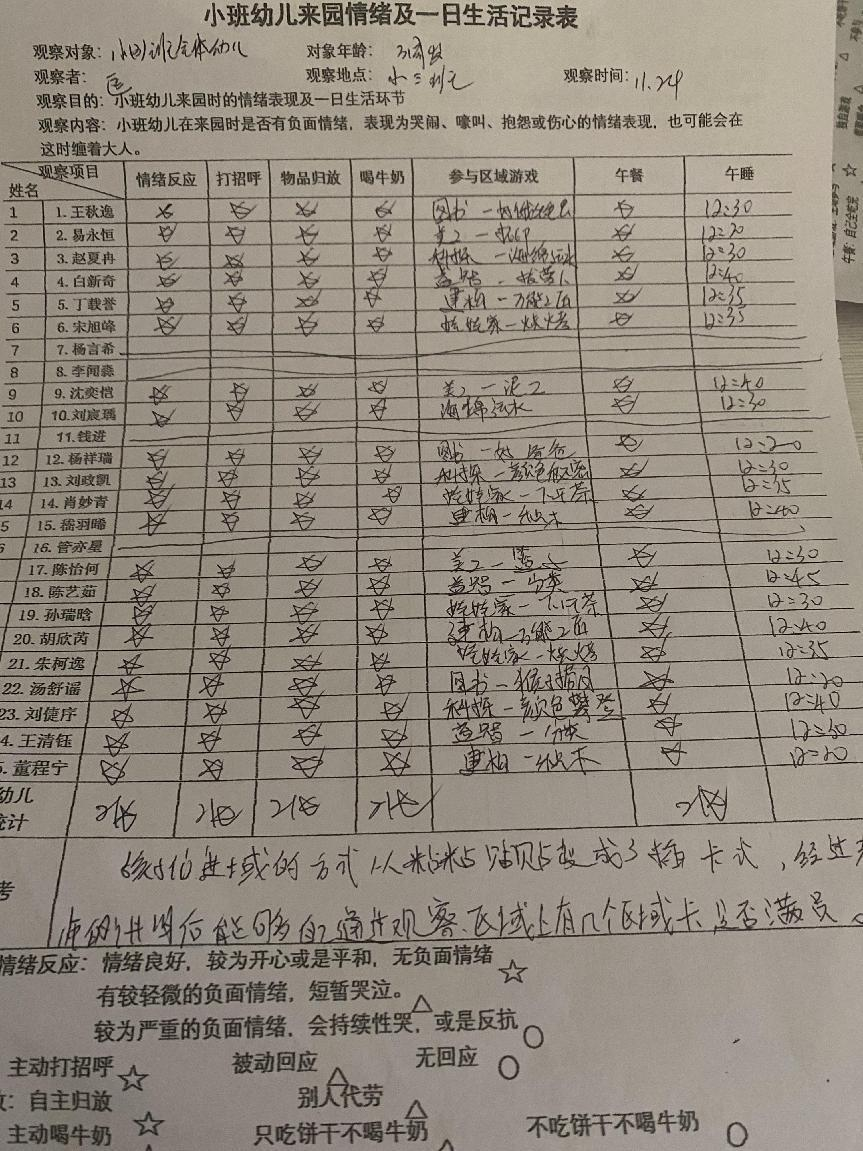 小班幼儿来园情绪及一日生活记录表
观察对象： 对象年龄：
观察者： 观察地点：小三班 观察时间：11.24
观察目的：小班幼儿来园时的情绪表现及一日生活环节
观察内容：小班幼儿在来园时是否有负面情绪，表现为哭闹、嚎叫、抱怨或伤心的情绪表现，也可能会在
这时缠着大人。
观察项目 姓名 情绪反应 打招呼 物品归放 喝牛奶 参与区域游戏 午餐 午睡
1 1. 王秋逸 ☆ ☆ ☆ ☆ 图书一 ☆ 12:30
2 2. 易永恒 ☆ ☆ ☆ ☆ 美工一 ☆
3 3. 赵夏冉 ☆ ☆ ☆ ☆ 科探一 ☆ 12:30
4 4. 白新奇 ☆ ☆ ☆ ☆ 益智一拔萝卜 ☆ 12:40
5 5. 丁载誉 ☆ ☆ ☆ ☆ 建构一万能工匠 ☆ 12:35
6 6. 宋旭峰 ☆ ☆ ☆ ☆ 娃娃家一烧烤 ☆ 12:35
7 7. 杨言希
8 8. 李闻淼
9 9. 沈奕恺 ☆ ☆ ☆ ☆ 美工一泥工 ☆ 12:40
10 10. 刘宸瑀 ☆ ☆ ☆ ☆ 海绵汲水 ☆ 12:30
11 11. 钱进
12 12. 杨祥瑞 ☆ ☆ ☆ ☆ 图书一 ☆ 12:20
13 13. 刘政凯 ☆ ☆ ☆ ☆ 科探一颜色 ☆ 12:30
14 14. 肖妙青 ☆ ☆ ☆ ☆ 娃娃家一下午茶 ☆ 12:35
5 15. 嵇羽晞 ☆ ☆ ☆ ☆ 建构一积木 ☆ 12:40
6 16. 管亦星
17. 陈怡何 ☆ ☆ ☆ 美工一 ☆ 12:30
18. 陈艺茹 ☆ ☆ ☆ ☆ 益智一分类 ☆ 12:45
19. 孙瑞晗 ☆ ☆ ☆ ☆ 娃娃家一下午茶 ☆ 12:30
20. 胡欣芮 ☆ ☆ ☆ ☆ 建构一万能工匠 ☆ 12:40
21. 朱柯逸 ☆ ☆ ☆ ☆ 娃娃家一烧烤 ☆ 12:35
22. 汤舒谣 ☆ ☆ ☆ ☆ 图书一猴子捞月 ☆ 12:20
23. 刘倢序 ☆ ☆ ☆ ☆ 科探一颜色攀登 ☆ 12:40
4. 王清钰 ☆ ☆ ☆ ☆ 益智一分类 ☆ 12:30
董程宁 ☆ ☆ ☆ ☆ 建构一积木 ☆ 12:20
幼儿统计 21☆ 21☆ 21☆ 21☆ 21☆
考 区域的方式从粘粘贴贴变成了插卡式，经过
能够自己通过观察区域上有几个区域卡是否满员。
情绪反应：情绪良好，较为开心或是平和，无负面情绪☆
有较轻微的负面情绪，短暂哭泣。△
较为严重的负面情绪，会持续性哭，或是反抗○
主动打招呼☆ 被动回应△ 无回应○
：自主归放☆ 别人代劳△
主动喝牛奶☆ 只吃饼干不喝牛奶 不吃饼干不喝牛奶○